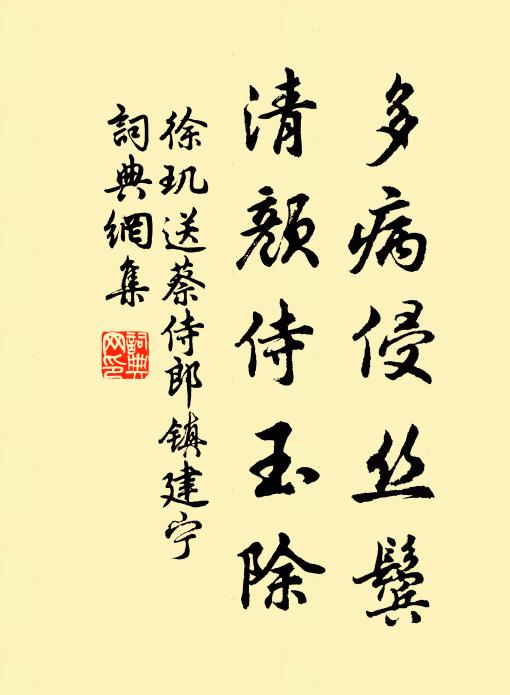 多病侵丝鬓
清颜侍玉除
徐玑送蔡侍郎镇建宁
词典網集
詞典
网印